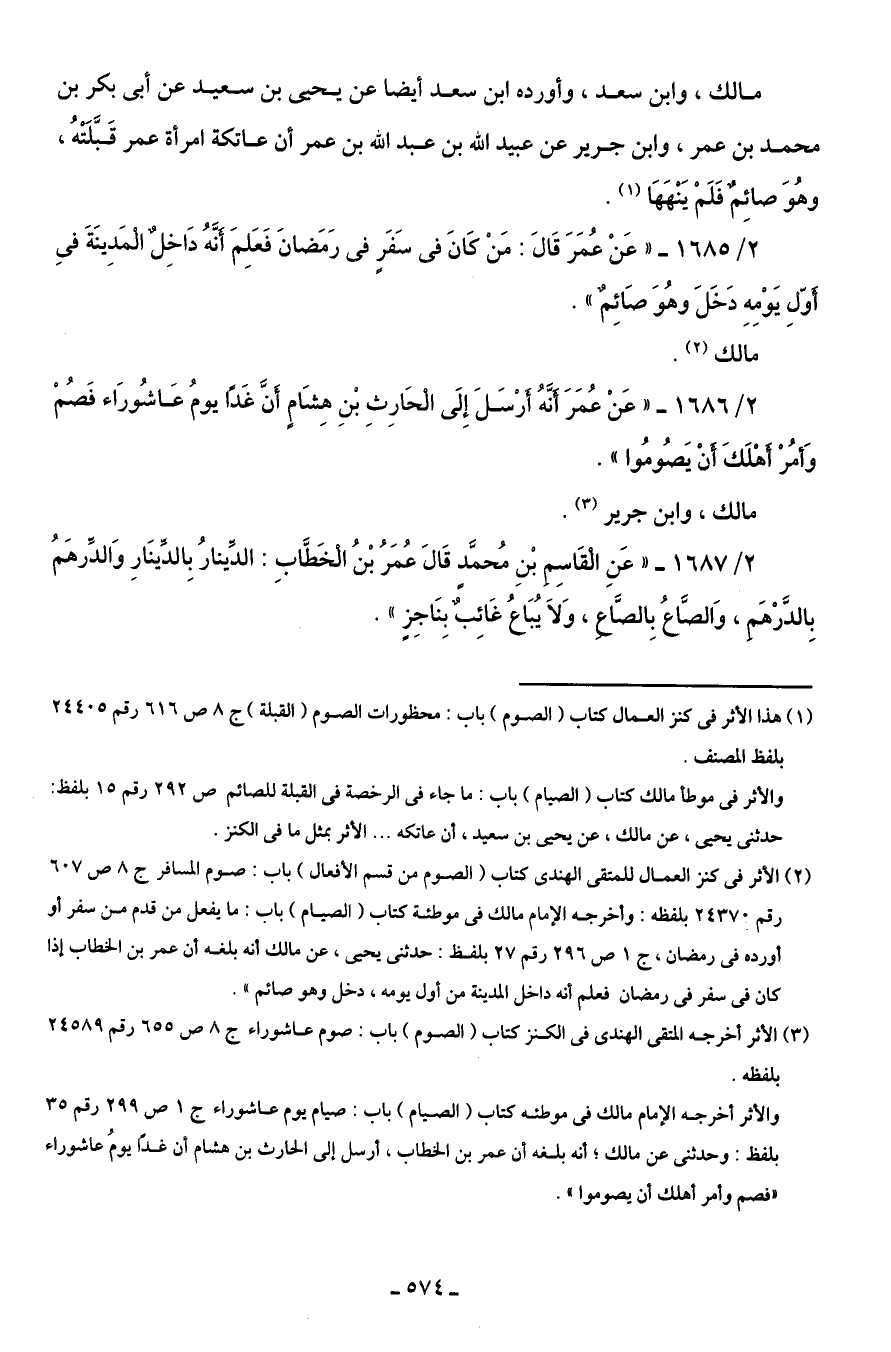 مالك ، وابن سعد ، وأورده ابن سعد أيضا عن يحيى بن سعيد عن أبى بكر بن
محمد بن عمر ، وابن جرير عن عبيد الله بن عبد الله بن عمر أن عاتكة امرأة عمر قَبَّلَتْهُ ،
وهُوَ صائِمٌ فَلَمْ يَنْهَهَا (١) .
٢/ ١٦٨٥ ـ « عَنْ عُمَرَ قَالَ : مَنْ كَانَ فى سَفَرٍ فى رَمَضانَ فَعَلِمَ أَنَّهُ دَاخِلٌ الْمَدِينَةَ فى
أَوَّلِ يَوْمِهِ دَخَلَ وهُوَ صَائِمٌ » .
مالك (٢) .
٢/ ١٦٨٦ ـ « عَنْ عُمَرَ أَنَّهُ أَرْسَلَ إِلَى الْحَارِثِ بْنِ هِشَامٍ أَنَّ غَدًا يومُ عَاشُورَاء فَصُمْ
وَأمُرْ أَهْلَكَ أَنْ يَصُومُوا » .
مالك ، وابن جرير (٣) .
٢/ ١٦٨٧ ـ « عَنِ الْقَاسِمِ بْنِ مُحمَّدٍ قَالَ عُمَرُ بْنُ الْخَطَّابِ : الدِّينارُ بِالدِّينَارِ وَالدِّرهَمُ
بِالدَّرْهَمِ ، وَالصَّاعُ بِالصَّاعِ ، وَلاَ يُبَاعُ غَائِبٌ بِنَاجِزٍ » .
(١) هذا الأثر فى كنز العمال كتاب ( الصوم ) باب : محظورات الصوم ( القبلة ) ج ٨ ص ٦١٦ رقم ٢٤٤٠٥
بلفظ المصنف .
والأثر فى موطأ مالك كتاب ( الصيام ) باب : ما جاء فى الرخصة فى القبلة للصائم ص ٢٩٢ رقم ١٥ بلفظ:
حدثنى يحيى ، عن مالك ، عن يحيى بن سعيد ، أن عاتكه ... الأثر بمثل ما فى الكنز .
(٢) الأثر فى كنز العمال للمتقى الهندى كتاب ( الصوم من قسم الأفعال ) باب : صوم المسافر ج ٨ ص ٦٠٧
رقم ٢٤٣٧٠ بلفظه : وأخرجه الإمام مالك فى موطئة كتاب ( الصيام ) باب : ما يفعل من قدم من سفر أو
أورده فى رمضان ، ج ١ ص ٢٩٦ رقم ٢٧ بلفظ : حدثنى يحيى ، عن مالك أنه بلغه أن عمر بن الخطاب إذا
كان فى سفر فى رمضان فعلم أنه داخل المدينة من أول يومه ، دخل وهو صائم » .
(٣) الأثر أخرجه المتقى الهندى فى الكنز كتاب ( الصوم ) باب : صوم عاشوراء ج ٨ ص ٦٥٥ رقم ٢٤٥٨٩
بلفظه .
والأثر أخرجه الإمام مالك فى موطئه كتاب ( الصيام ) باب : صيام يوم عاشوراء ج ١ ص ٢٩٩ رقم ٣٥
بلفظ : وحدثنى عن مالك ؛ أنه بلغه أن عمر بن الخطاب ، أرسل إلى الحارث بن هشام أن غدًا يومُ عاشوراء
«فصم وأمر أهلك أن يصوموا » .
ـ ٥٧٤ ـ